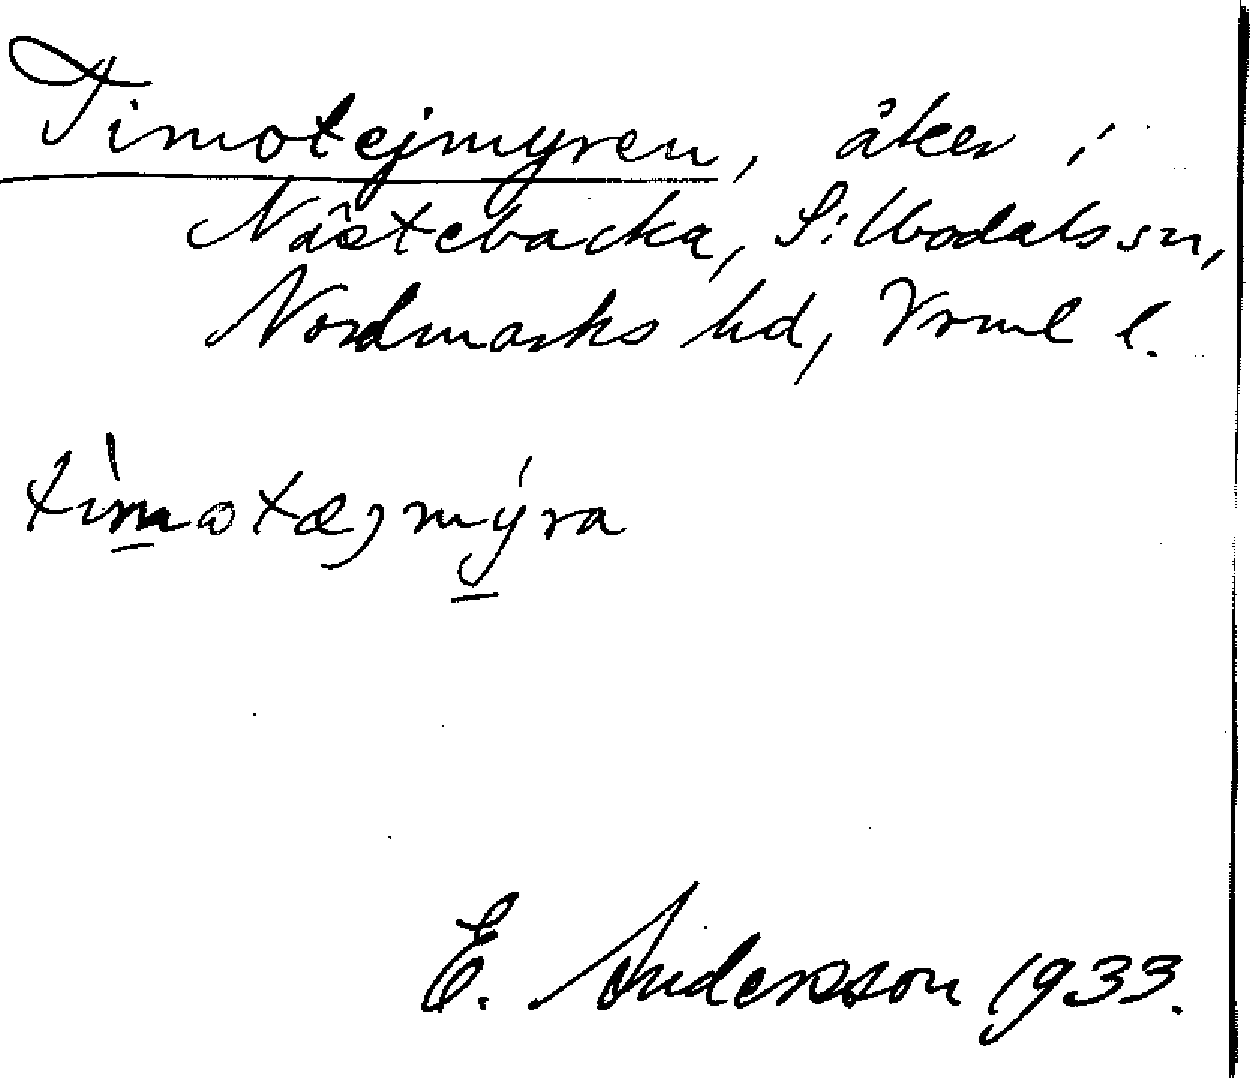 Timotejmyren, åker i
Nästebacka, Silbodals sn,
Nordmarks hd, Vrml l.
tìmotæjmýra
E. Andersson 1933.